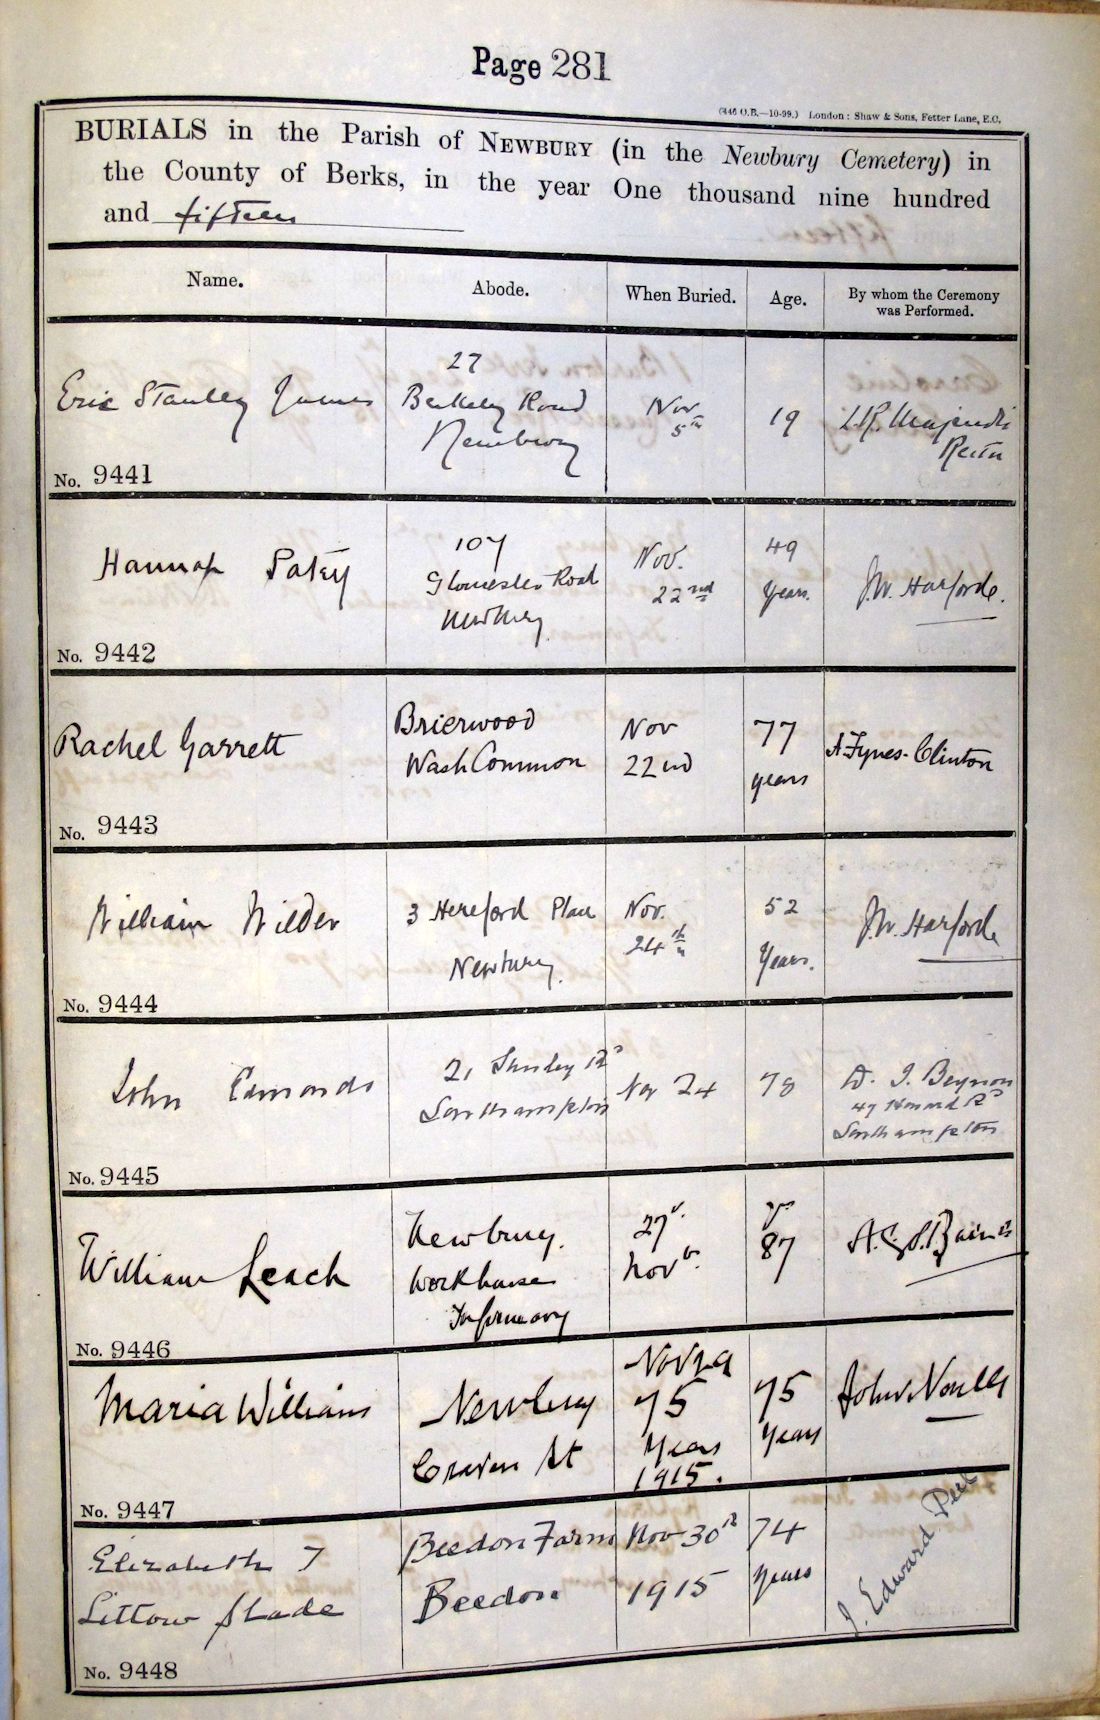 Page 281
(446 O.B.—10-99.) London: Shaw & Sons, Fetter Lane, E.C.
BURIALS in the Parish of NEWBURY (in the Newbury Cemetery) in
the County of Berks, in the year One thousand nine hundred
and fifteen
Name.
Abode.
When Buried.
Age.
By whom the Ceremony
was Performed.
Eric Stanley James
27
Berkeley Road
Newbury
Nov
5th
19
L.R. Majendie
Rector
No. 9441
Hannah
107
Gloucester Road
Newbury
Nov.
22nd
49
Years.
J.W. Harforde.
No. 9442
Rachel Garrett
Brierwood
Wash Common
Nov
22nd
77
years
A Fynes-Clinton
No. 9443
William Wilder
3 Hereford Place
Newbury.
Nov.
24th
52
Years.
J.W. Harforde
No. 9444
John Edmonds
21 Rd
Southampton
Nov 24
78
D. J. Beynon
47 Howard Rd
Southampton
No. 9445
William Leach
Newbury.
Workhouse
Infirmary
27
Nov
yrs
87
No. 9446
Maria Williams
Newbury
Craven St
Nov 29
75
Years
1915.
75
Years
John
No. 9447
Elizabeth J
Littow Slade
Beedon Farm
Beedon
Nov 30th
1915
74
Years
J. Edward
No. 9448